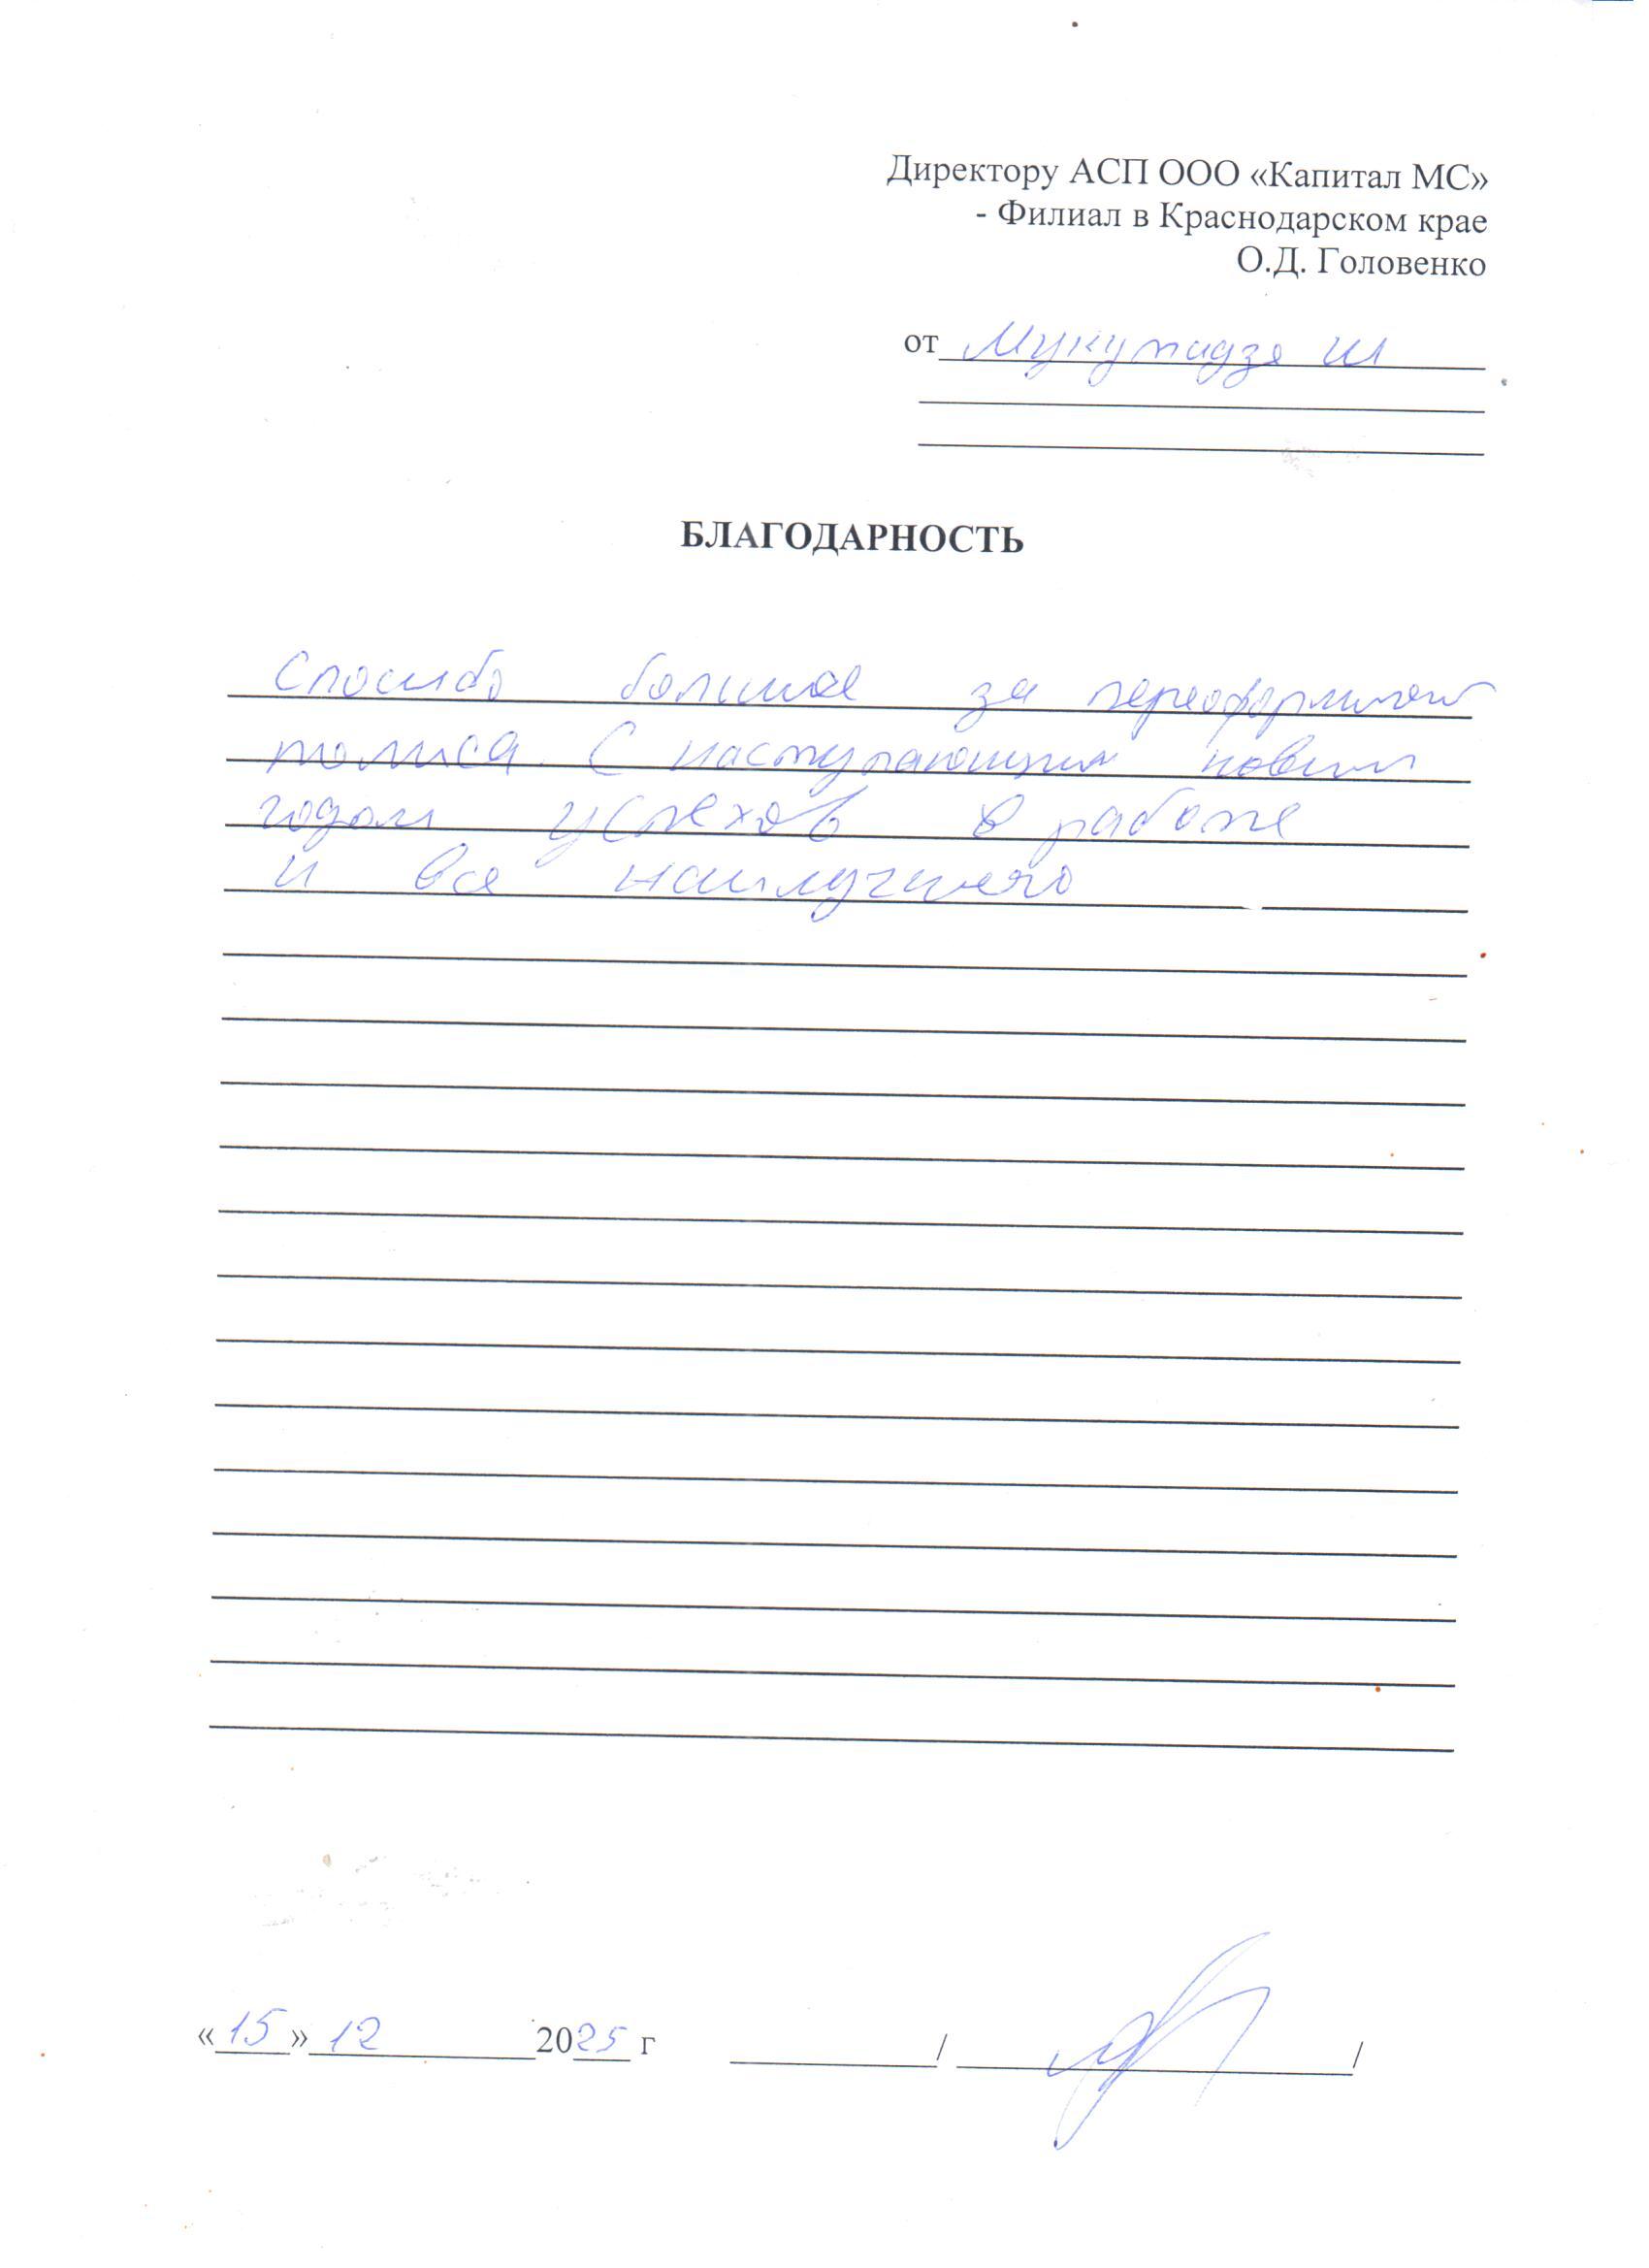 Директору АСП ООО «Капитал МС»
- Филиал в Краснодарском крае
О.Д. Головенко
от Мукутадзе Ш
БЛАГОДАРНОСТЬ
Спосибо большое за
полиса. С наступающим новым
годом успехов в работе
и все наилучшего
«15» 12 2025 г / /